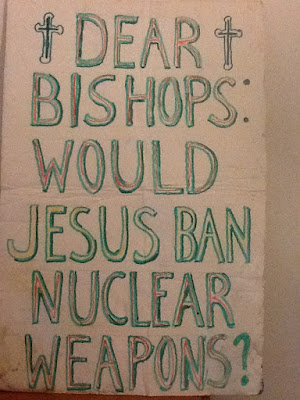 DEAR
BISHOPS:
WOULD
JESUS BAN
NUCLEAR
WEAPONS?